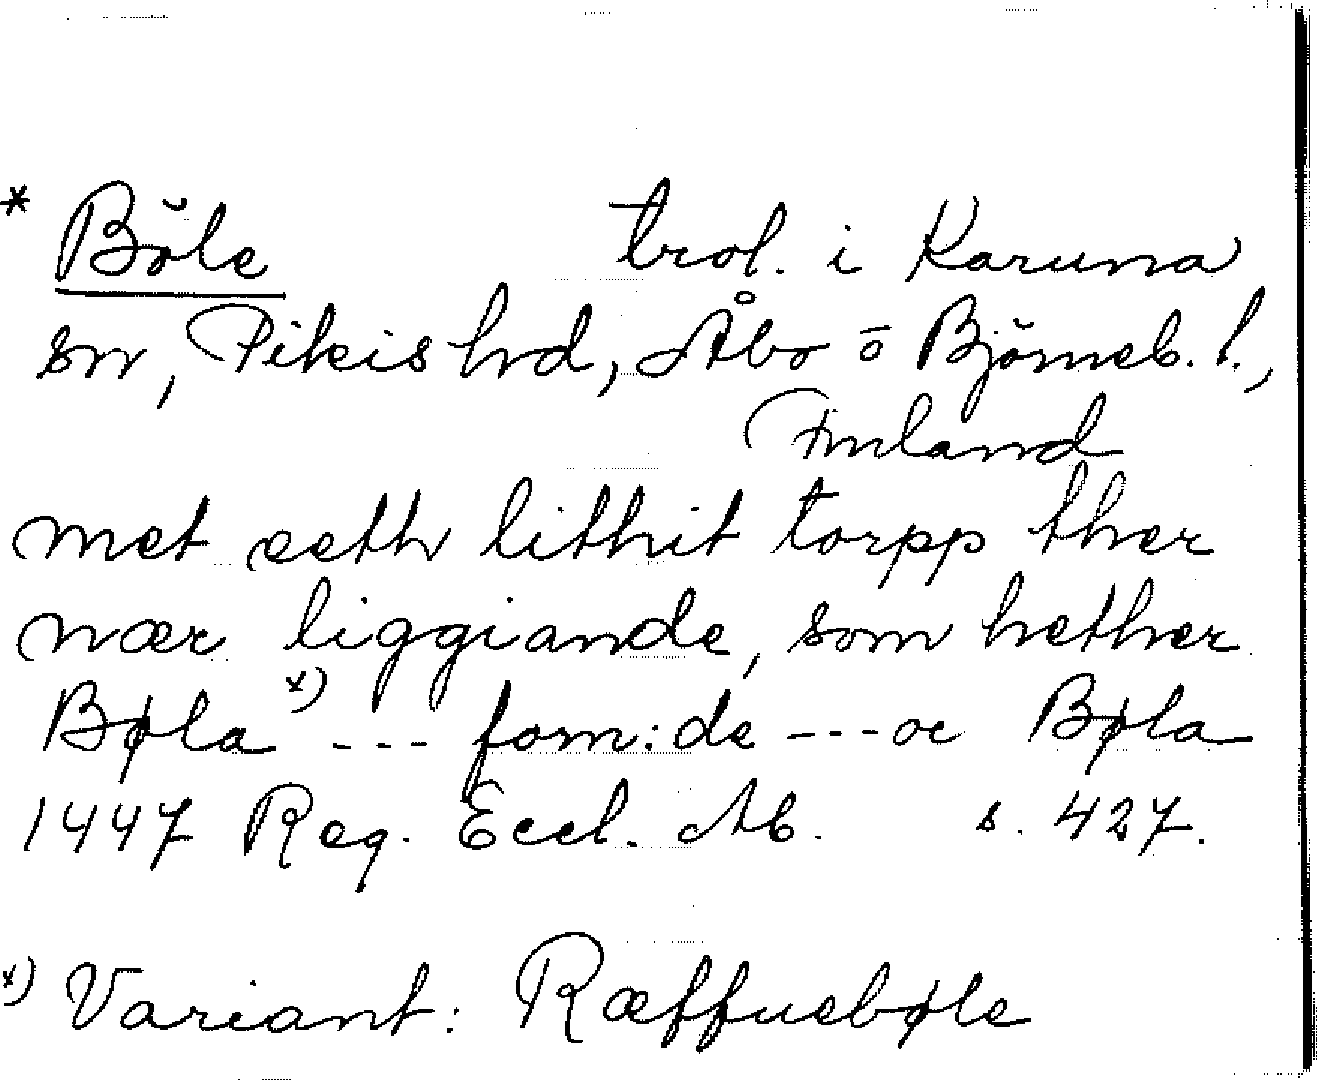 * Böle trol. i Karuna
sn, Pikis hd, Åbo o Björneb. l.,
Finland
met eeth lithit torpp ther
nær liggiande, som hether
Bøla x) --- forn:de --- oc Bøla
1447 Reg. Eccl. Ab. s. 427.
x) Variant: Ræffuebøle